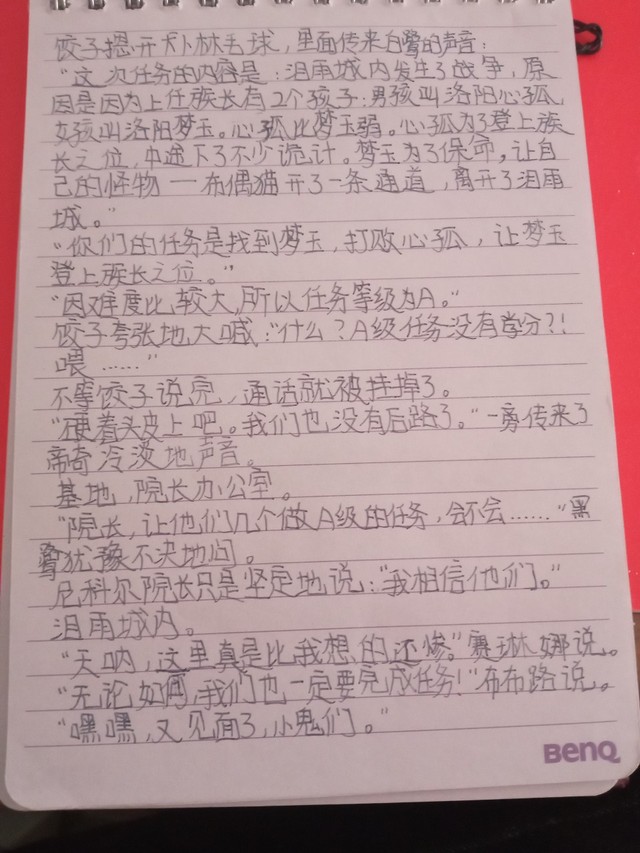 饺子摁开卡卜林毛球，里面传来白鹭的声音：
“这次任务的内容是：泪雨城内发生了战争，原
因是因为上任族长有2个孩子：男孩叫洛阳心孤，
女孩叫洛阳梦玉。心孤比梦玉弱。心孤为了登上族
长之位，中途下了不少诡计。梦玉为了保命，让自
己的怪物——布偶猫开了一条通道，离开了泪雨
城。”
“你们的任务是找到梦玉，打败心孤，让梦玉
登上族长之位。”
“因难度比较大，所以任务等级为A。”
饺子夸张地大喊：“什么？A级任务没有学分？！
喂……”
不等饺子说完，通话就被挂掉了。
“硬着头皮上吧。我们也没有后路了。”一旁传来了
帝奇冷漠地声音。
基地，院长办公室。
“院长，让他们几个做A级的任务，会不会……“黑
鹭犹豫不决地问。
尼科尔院长只是坚定地说：“我相信他们。”
泪雨城内。
“天呐，这里真是比我想的还惨。”赛琳娜说。
“无论如何，我们也一定要完成任务！”布布路说。
“嘿嘿，又见面了，小鬼们。”
BenQ